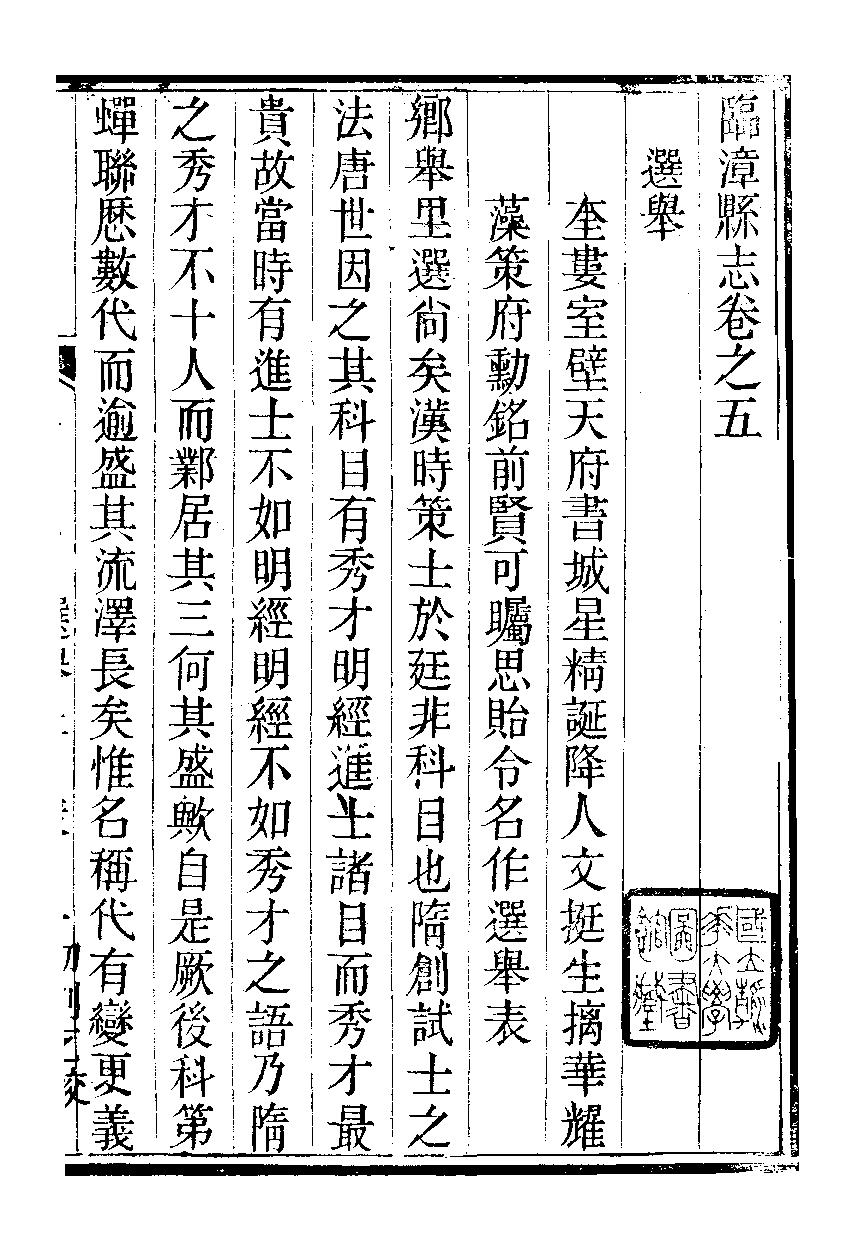 臨漳縣志卷之五
選舉
奎婁室壁天府書城星精誕降人文挺生摛華耀
藻策府勳銘前賢可矚思貽令名作選舉表
鄉舉里選尙矣漢時策士於廷非科目也隋創試士之
法唐世因之其科目有秀才明經進士諸目而秀才最
貴故當時有進士不如明經明經不如秀才之語乃隋
之秀才不十人而鄴居其三何其盛歟自是厥後科第
蟬聯歷數代而逾盛其流澤長矣惟名稱代有變更義
國立
大學
圖書